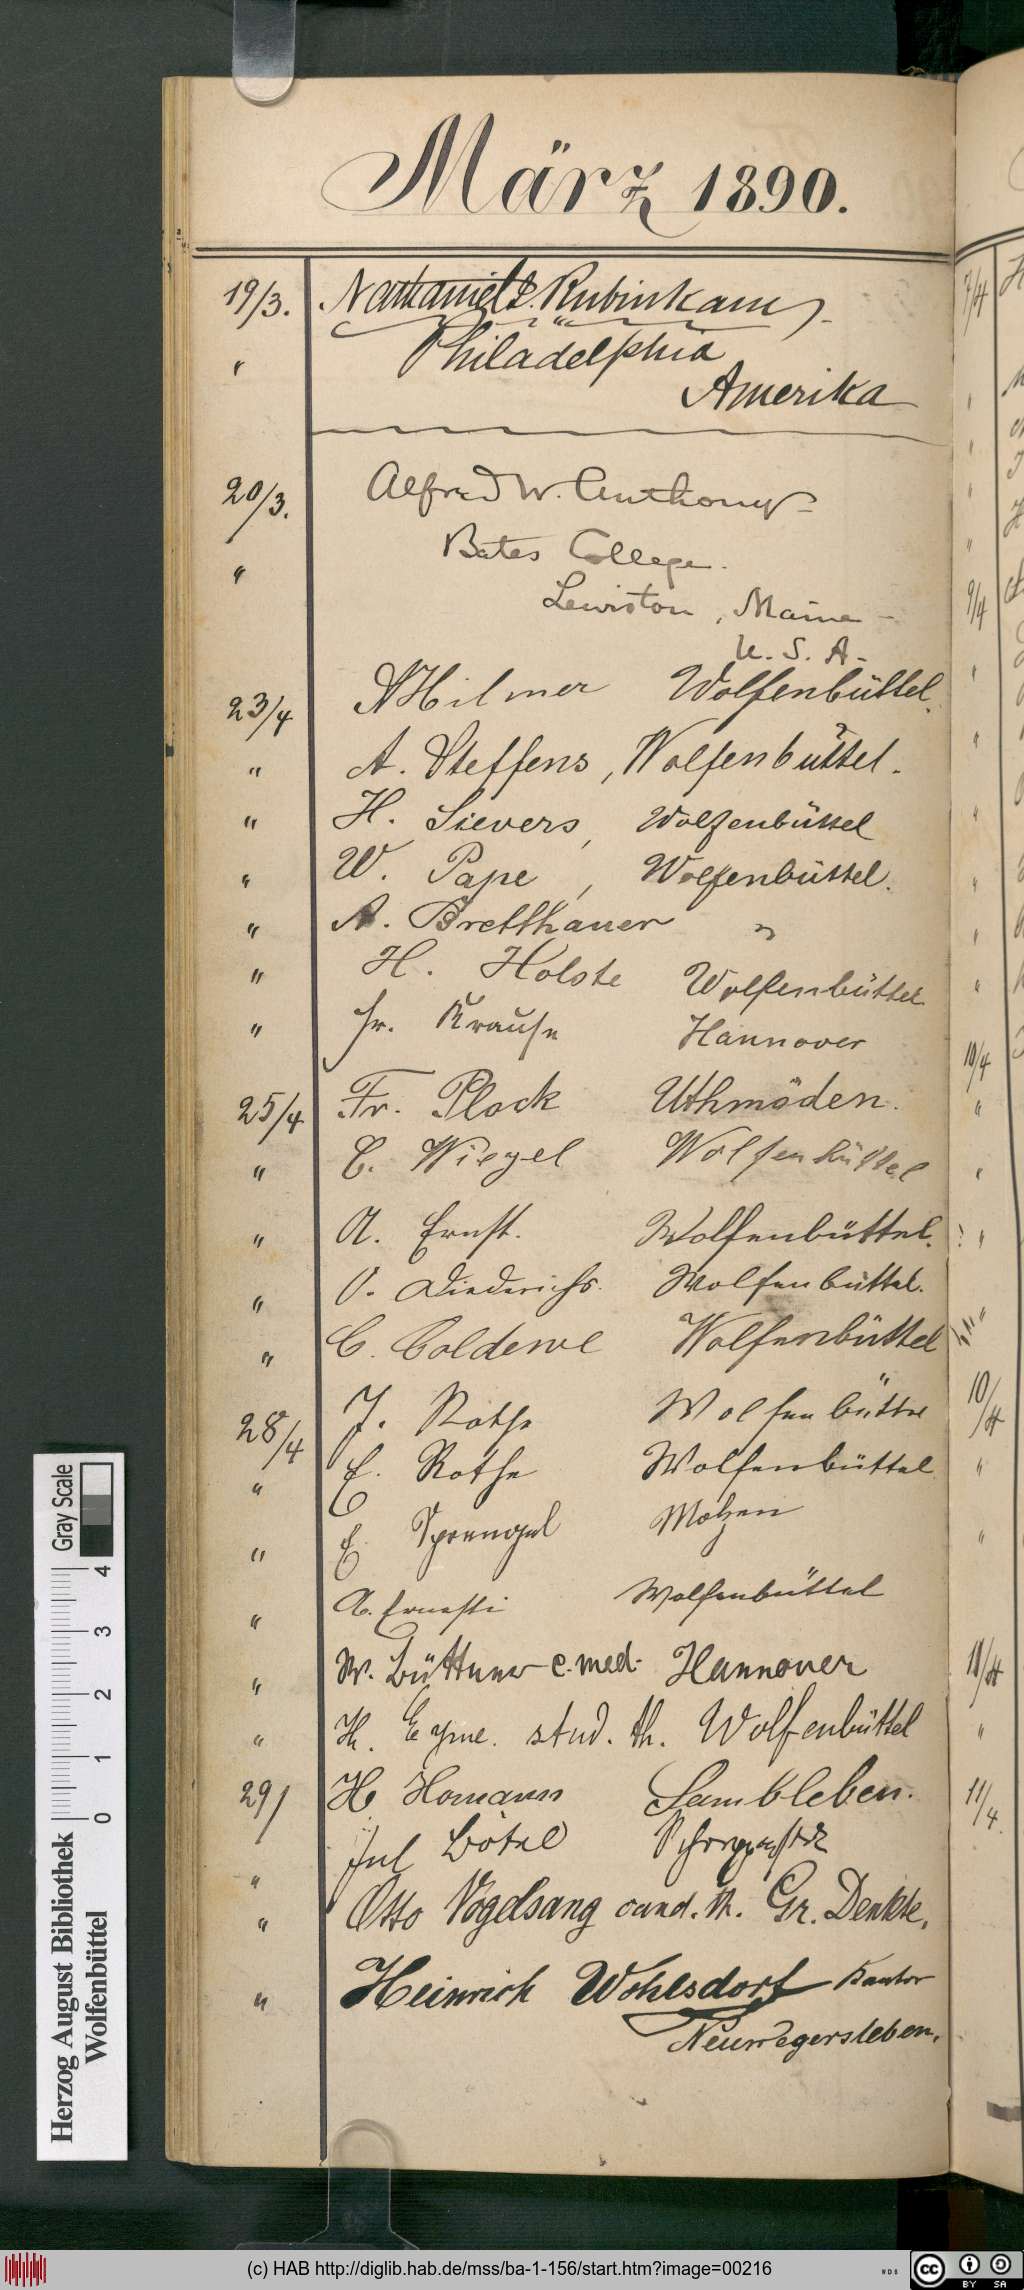 März 1890.
19/3. Nathaniel I. Rubinkam,
" Philadelphia
Amerika
20/3. Alfred W. Anthony
Bates College.
" Lewiston, Maine
U. S. A.
23/4 A Hilmer Wolfenbüttel.
" A. Steffens, Wolfenbüttel.
" H. Sievers, Wolfenbüttel
" W. Pape, Wolfenbüttel.
" A. Bretthauer "
" H. Holste Wolfenbüttel
" Fr. Krause Hannover
25/4 Fr. Plock Uthmöden.
" C. Wiezel Wolfenbüttel
" A. Ernst. Wolfenbüttel.
" O. Diederichs. Wolfenbüttel.
" C. Coldewe Wolfenbüttel
28/4 J. Rothe Wolfenbüttel
" E. Rothe Wolfenbüttel
" E. Sprengel
" A. Ernesti Wolfenbüttel
" W. Büttner c. med. Hannover
" H. Eyme. stud. th. Wolfenbüttel
29/ H Homann Sambleben.
" Jul Bötel Schöppenstedt
" Otto Vogelsang cand. th. Gr. Denkte.
" Heinrich Wohlsdorf Kantor
Neuwegersleben.
7/4
9/4
10/4
10/4
11/4
Gray Scale
0 1 2 3 4
Herzog August Bibliothek
Wolfenbüttel
(c) HAB http://diglib.hab.de/mss/ba-1-156/start.htm?image=00216
WDB
cc BY SA